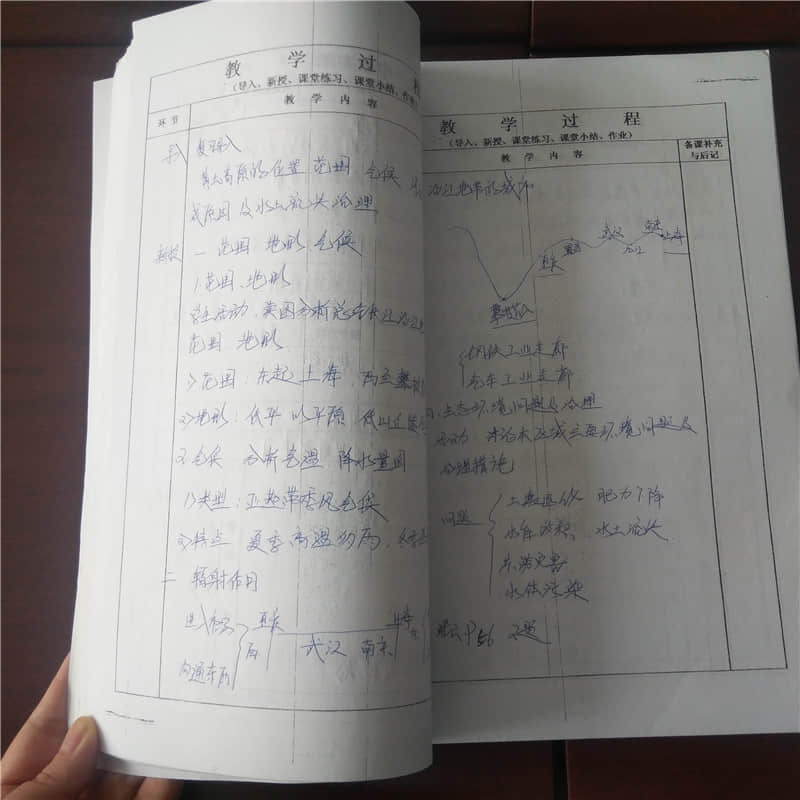 教 学 过 程
（导入、新授、课堂练习、课堂小结、作
环 节
教 学 内 容
导入 复习导入
黄土高原的位置 范围 气候
成原因及水土流失治理
新授 一 范围 地形 气候
1.范围、地形
学生活动、读图分析总结长江沿江
范围 地形
1)范围：东起上海，西至攀枝
2)地形：低平 以平原 低山丘陵
2.气候 分析气温 降水量图
1)类型：亚热带季风气候
2)特点 夏季高温多雨，冬
二 辐射作用
重庆
武汉 南京
上海
沟通东西
教 学 过 程
（导入、新授、课堂练习、课堂小结、作业）
教 学 内 容
备课补充
与后记
沿江地带的城市
攀枝花
重庆
宜昌
武汉
九江
南京
上海
钢铁工业走廊
汽车工业走廊
生态环境问题及治理
活动 讨论本区域主要环境问题及
治理措施
问题
土壤退化 肥力下降
水库淤积、水土流失
洪涝灾害
水体污染
P56